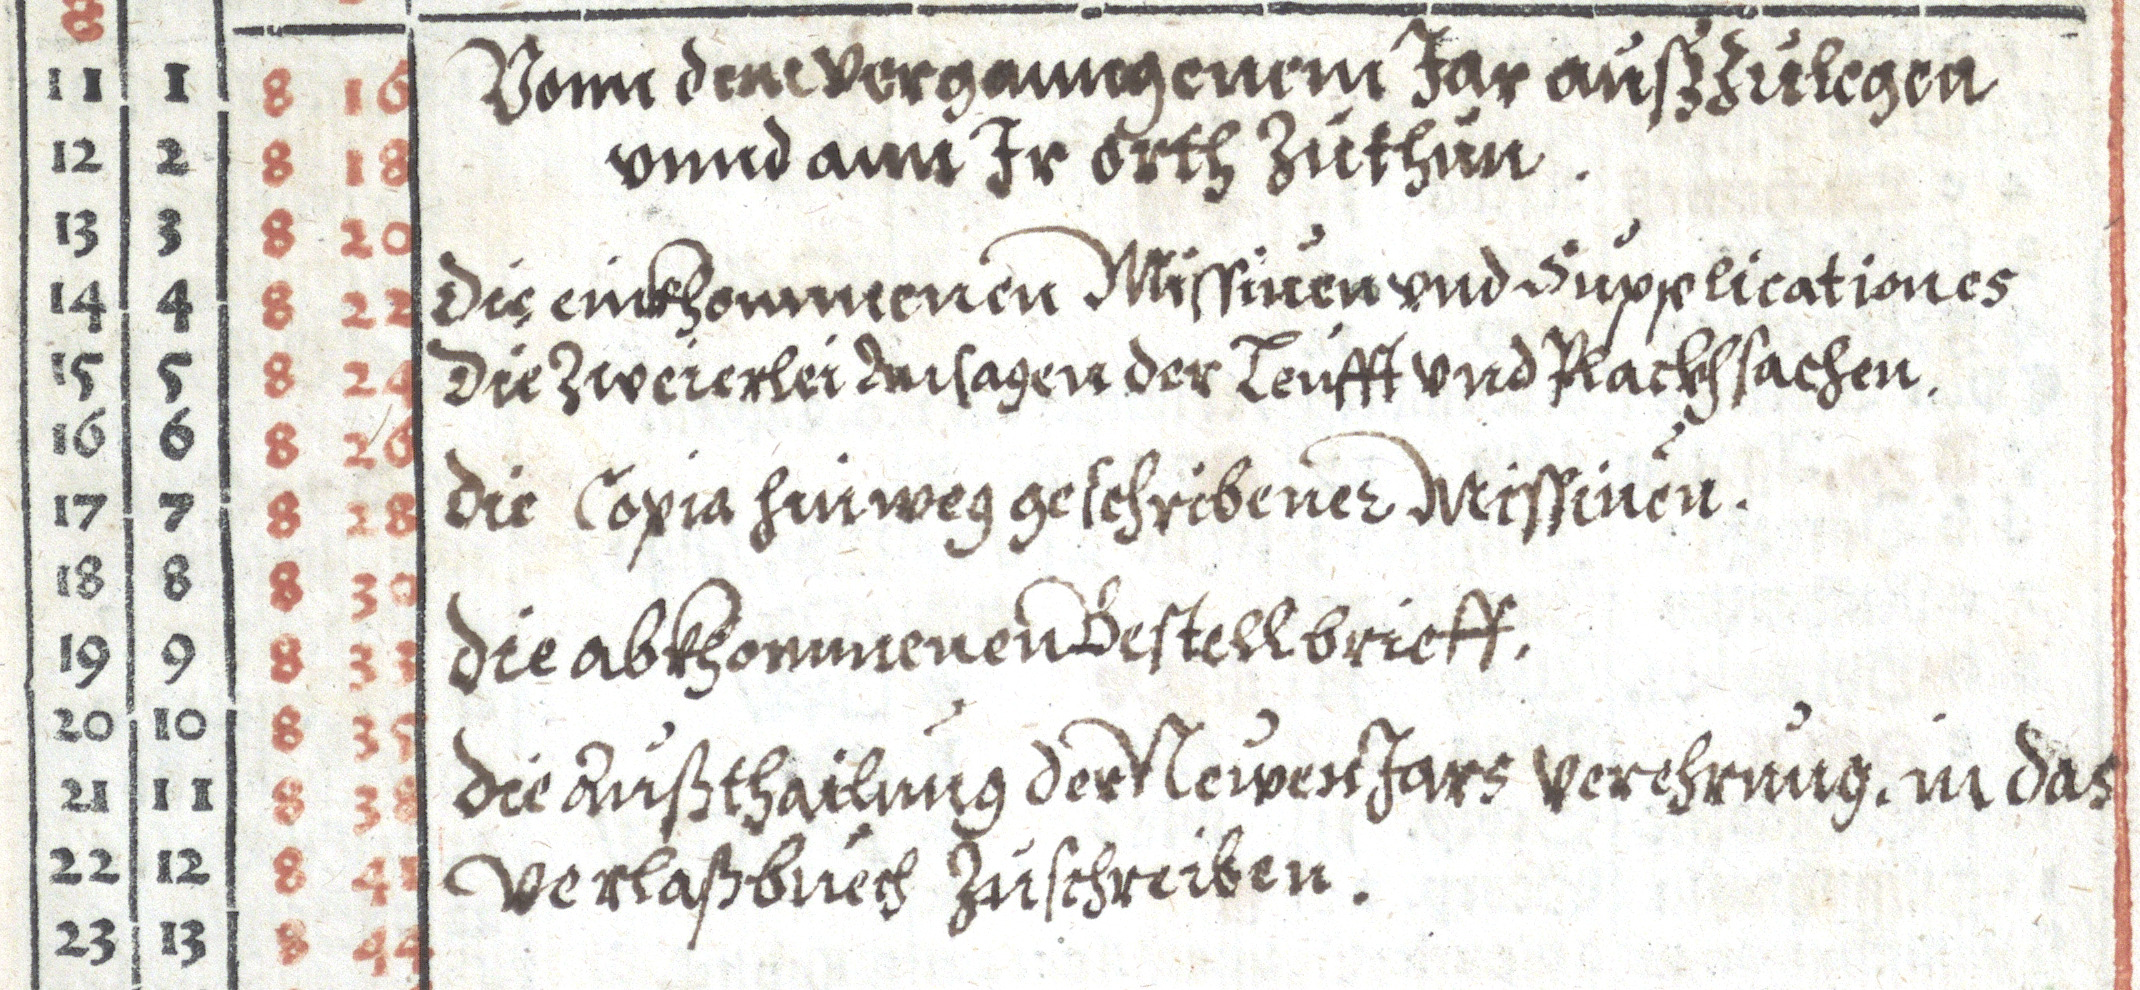 8
11 1 8 16 Vonn dem verganngenem Jar außzülegen
12 2 8 18 vnnd ann Jr orth züthün.
13 3 8 20
14 4 8 22 Die einkhommenen Missiuen vnd Supplicationes
15 5 8 24 Die Zweierlei Ansagen der Leüfft vnd Rackhsachen.
16 6 8 26
17 7 8 28 Die Copia hinweg geschribener Missiuen.
18 8 8 30
19 9 8 33 Die abkhommenen Bestellbrieff.
20 10 8 35
21 11 8 38 Die Außthailung der Newen Jars verehrung. in das
22 12 8 41 verlaßbuech Zuschreiben.
23 13 8 44